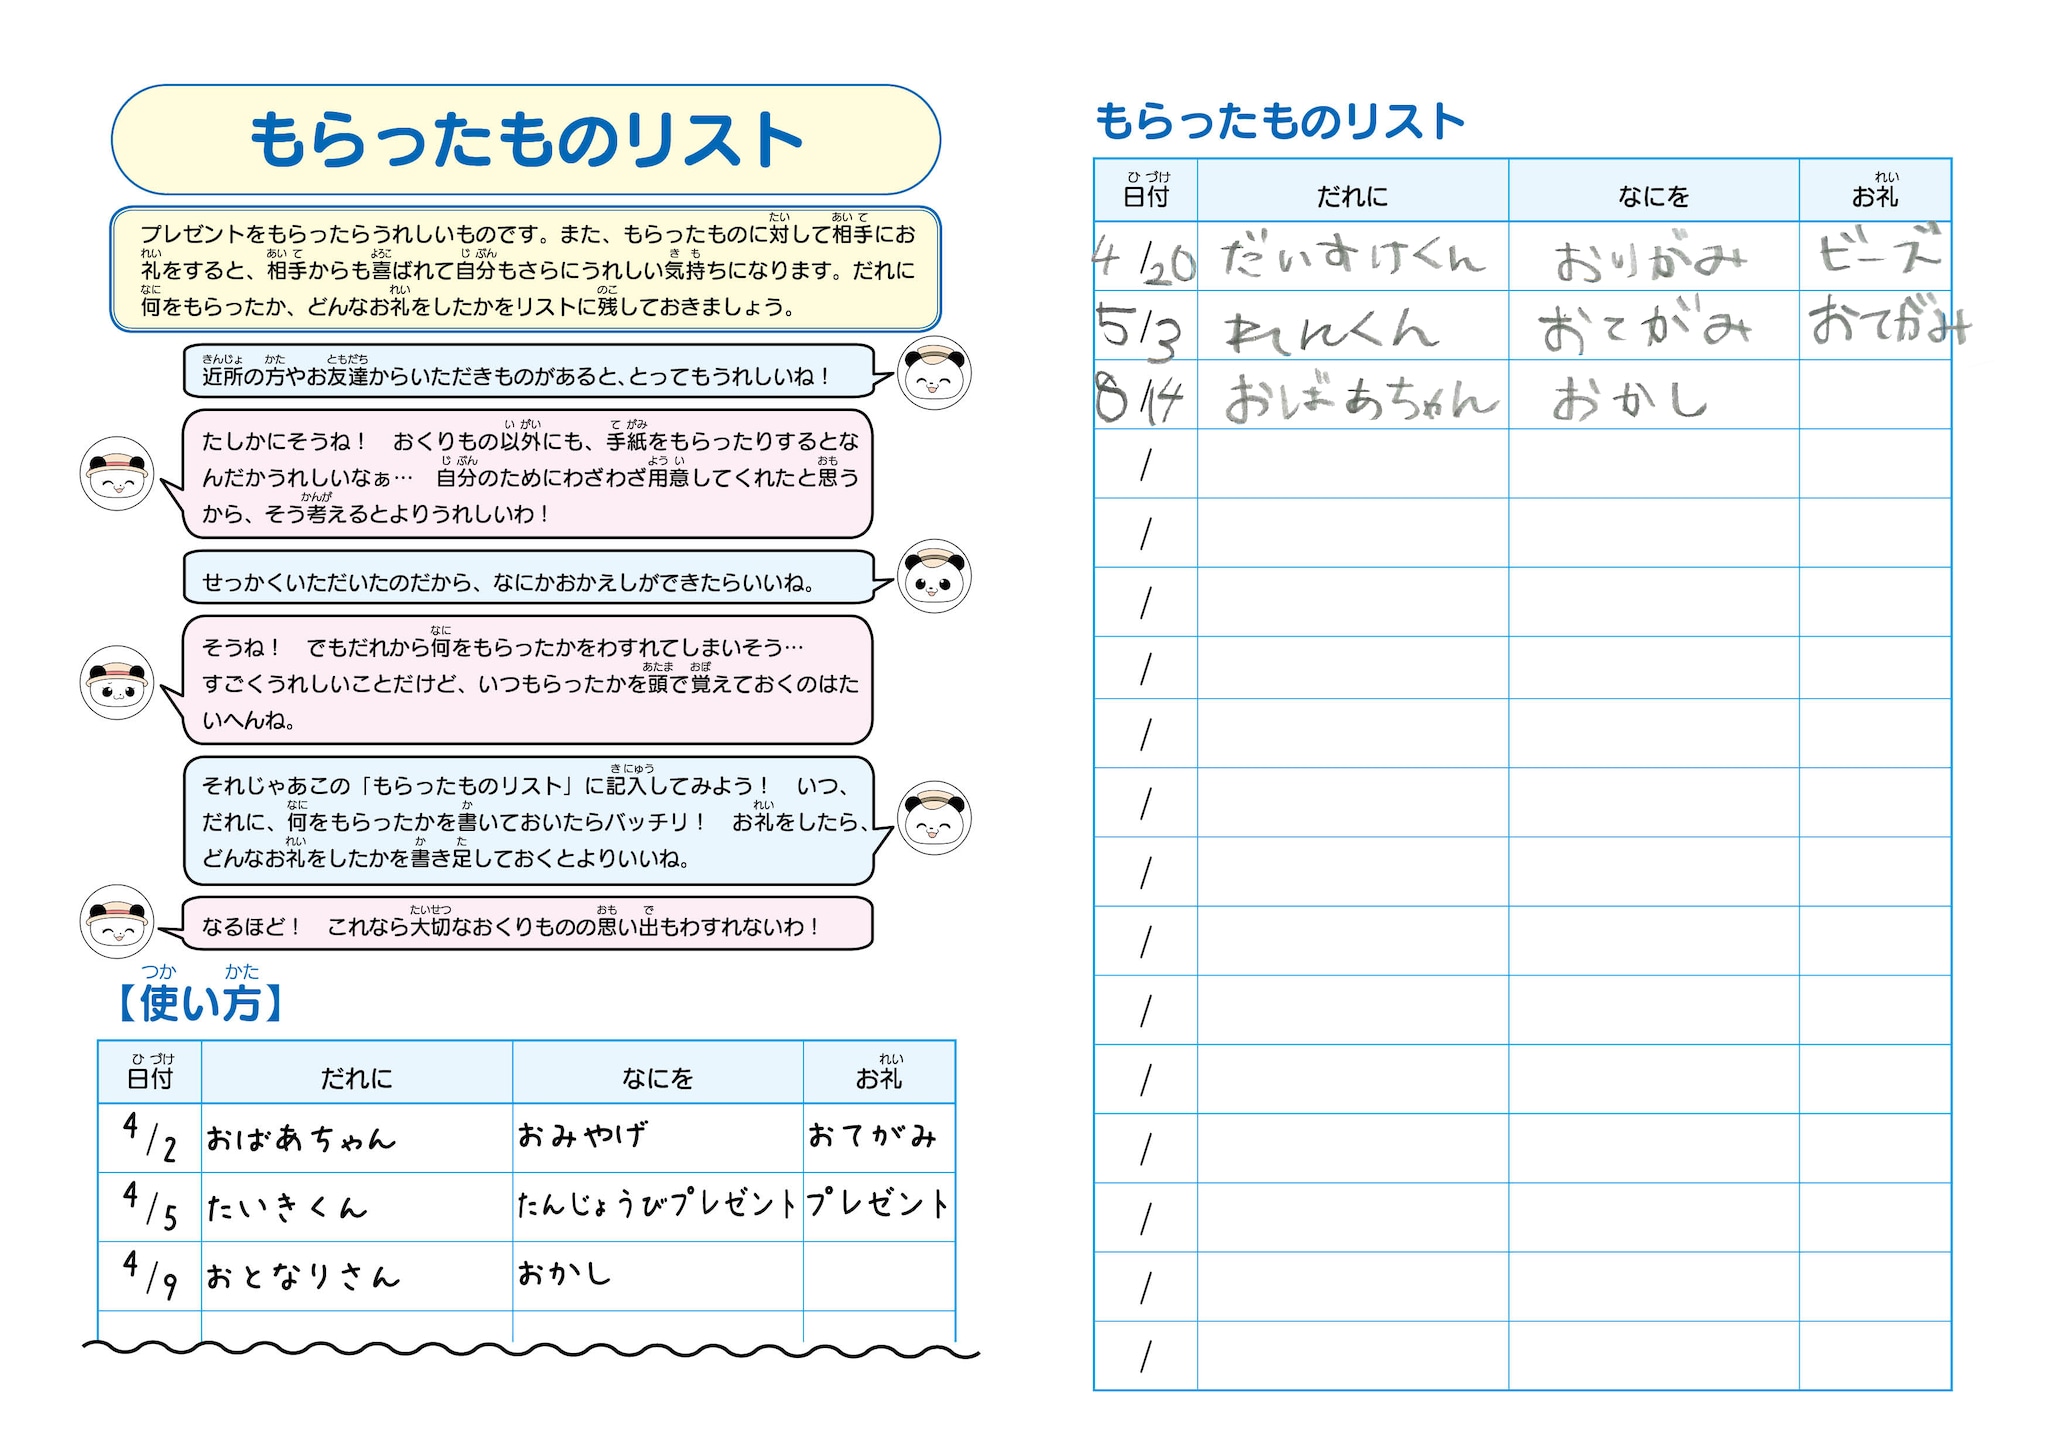 もらったものリスト
プレゼントをもらったらうれしいものです。また、もらったものに対して相手にお
礼をすると、相手からも喜ばれて自分もさらにうれしい気持ちになります。だれに
何をもらったか、どんなお礼をしたかをリストに残しておきましょう。
近所の方やお友達からいただきものがあると、とってもうれしいね！
たしかにそうね！　おくりもの以外にも、手紙をもらったりするとな
んだかうれしいなぁ…　自分のためにわざわざ用意してくれたと思う
から、そう考えるとよりうれしいわ！
せっかくいただいたのだから、なにかおかえしができたらいいね。
そうね！　でもだれから何をもらったかをわすれてしまいそう…
すごくうれしいことだけど、いつもらったかを頭で覚えておくのはた
いへんね。
それじゃあこの「もらったものリスト」に記入してみよう！　いつ、
だれに、何をもらったかを書いておいたらバッチリ！　お礼をしたら、
どんなお礼をしたかを書き足しておくとよりいいね。
なるほど！　これなら大切なおくりものの思い出もわすれないわ！
【使い方】
日付 だれに なにを お礼
4/2 おばあちゃん おみやげ おてがみ
4/5 たいきくん たんじょうびプレゼント プレゼント
4/9 おとなりさん おかし
もらったものリスト
日付 だれに なにを お礼
4/20 だいすけくん おりがみ ビーズ
5/3 れんくん おてがみ おてがみ
8/14 おばあちゃん おかし
/
/
/
/
/
/
/
/
/
/
/
/
/
/